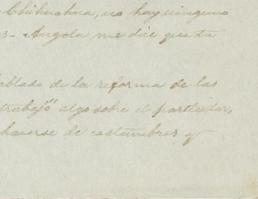 Chihuahua, no hay ninguno
s. Angola me dice que tu
hablado de la reforma de las
trabajo" algo sobre el particular,
hacerse de costumbres y